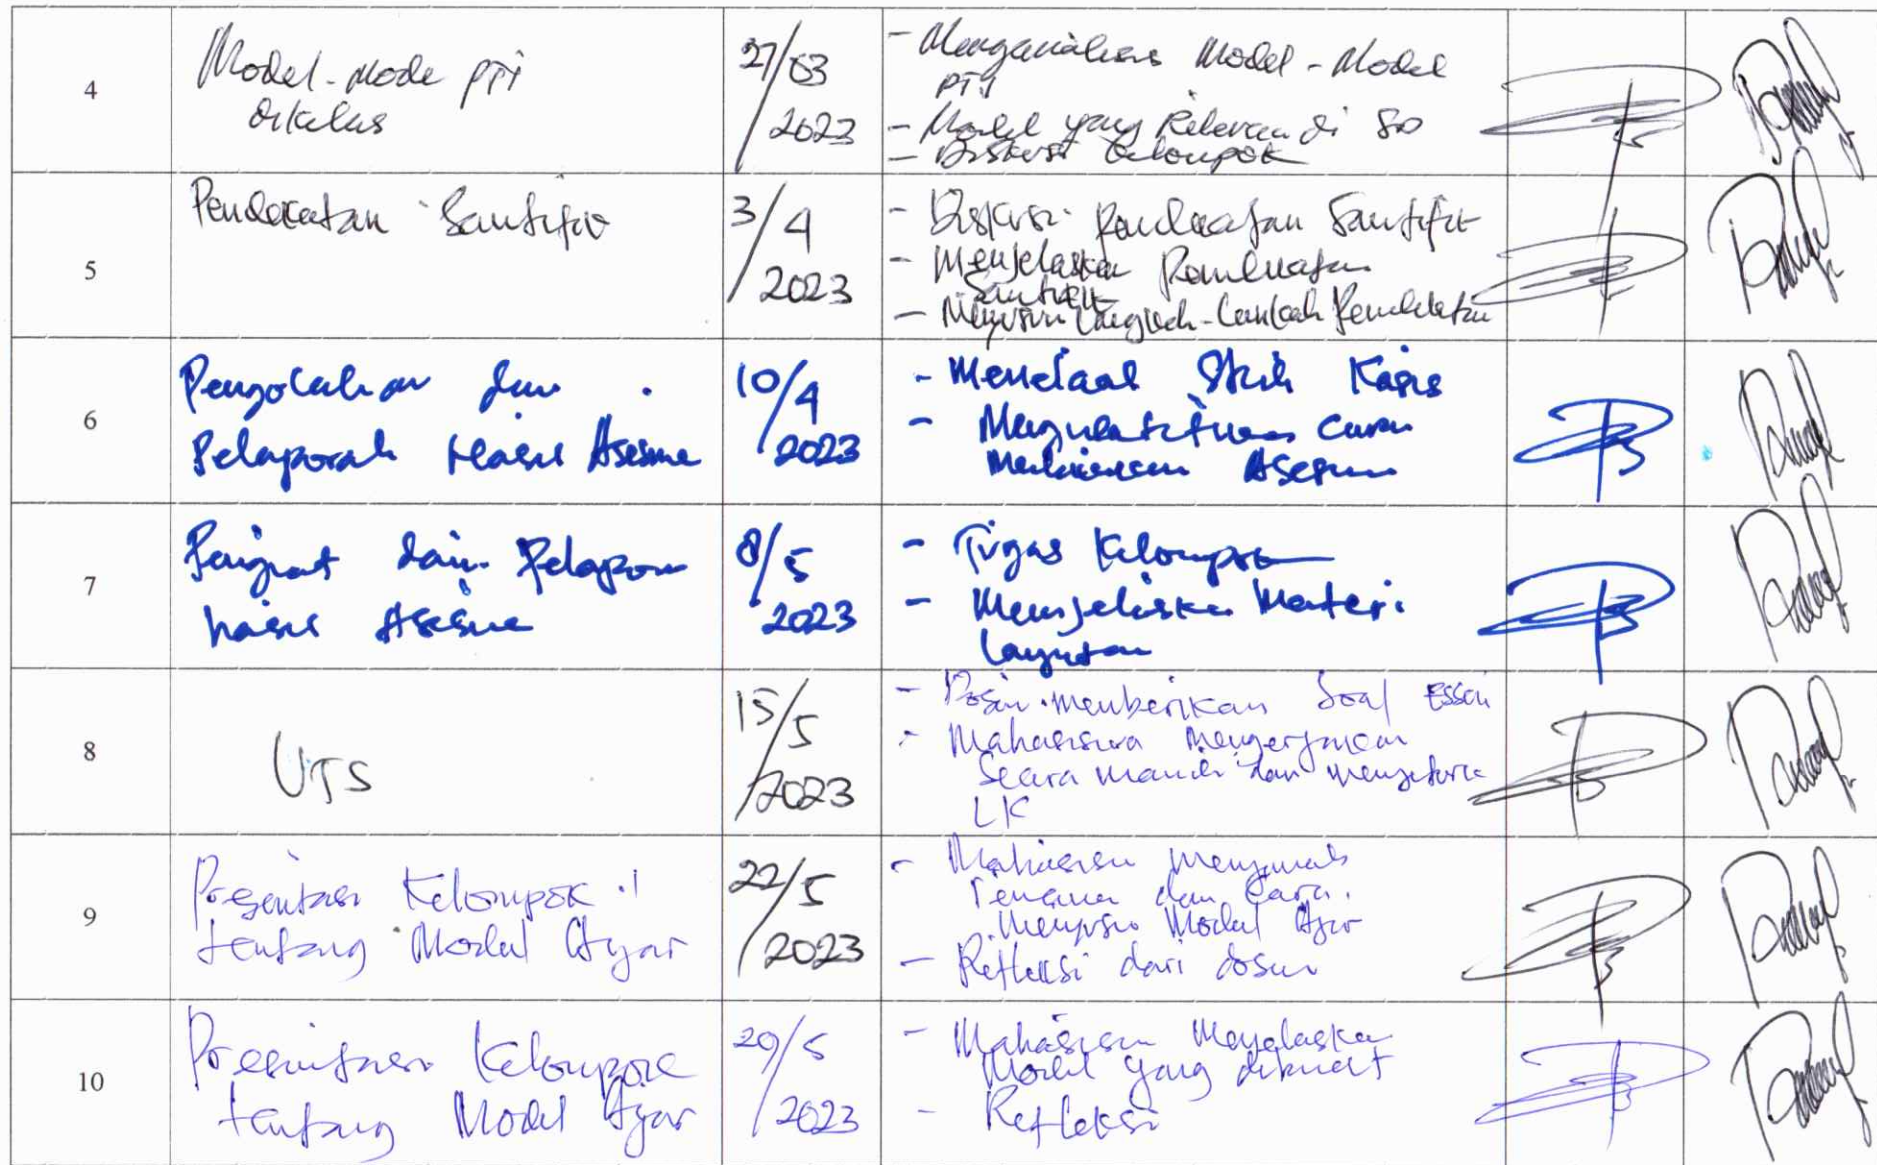 4
Model-mode PTI
dikelas
27/03
2023
- Menganalisis Model-Model
PTI
- Model yang Relevan di SD
- Diskusi Kelompok
5
Pendekatan Saintifik
3/4
2023
- Diskusi Pendekatan Saintifik
- Menjelaskan Pendekatan
Saintifik
- Menyusun Langkah-Langkah Pendekatan
6
Pengolahan dan
Pelaporan Hasil Asesme
10/4
2023
- Menelaah Studi Kasus
- cara
Asesmen
7
dan Pelapor
hasil Asesme
8/5
2023
- Tugas Kelompok
- Menjelaskan Materi
Lanjutan
8
UTS
15/5
2023
- Dosen memberikan Soal Essai
- Mahasiswa mengerjakan
Secara mandiri dan menyetorkan
LK
9
Presentasi Kelompok 1
tentang Modul Ajar
22/5
2023
- Mahasiswa
dan Cara
Menyusun Modul Ajar
- Refleksi dari dosen
10
Presentasi Kelompok
tentang Modul Ajar
29/5
2023
- Mahasiswa Menjelaskan
Model yang dibuat
- Refleksi